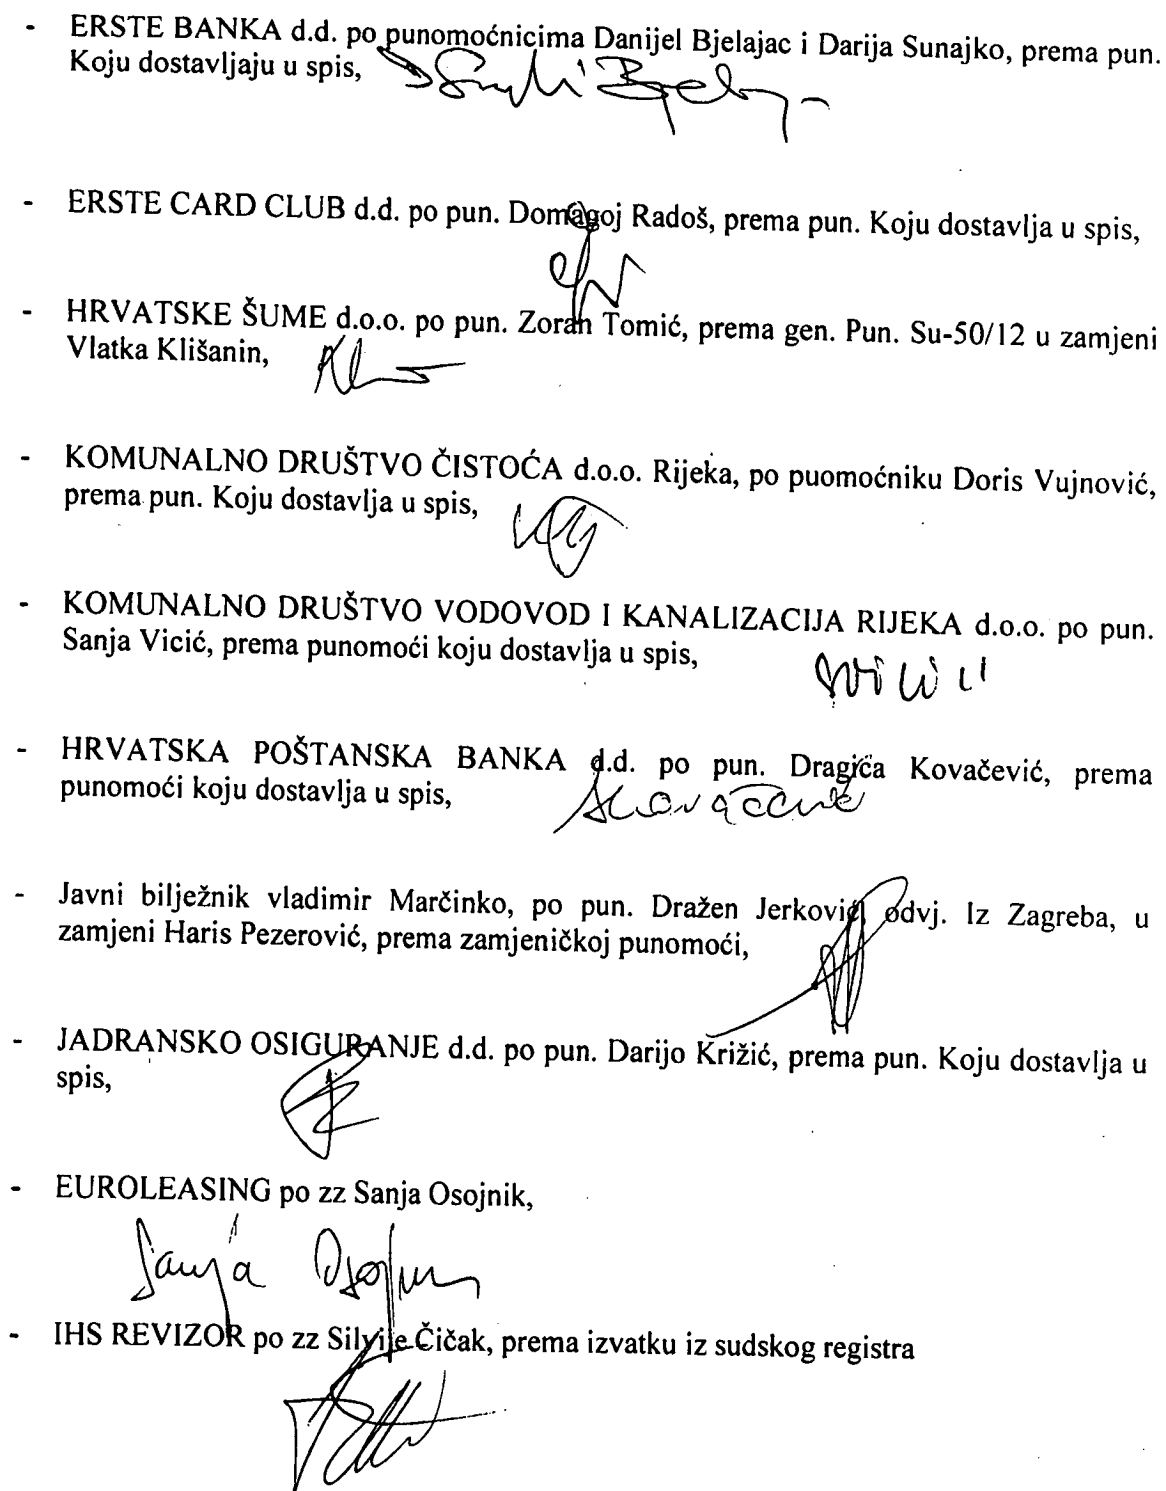 - ERSTE BANKA d.d. po punomoćnicima Danijel Bjelajac i Darija Sunajko, prema pun.
Koju dostavljaju u spis,
- ERSTE CARD CLUB d.d. po pun. Domagoj Radoš, prema pun. Koju dostavlja u spis,
- HRVATSKE ŠUME d.o.o. po pun. Zoran Tomić, prema gen. Pun. Su-50/12 u zamjeni
Vlatka Klišanin,
- KOMUNALNO DRUŠTVO ČISTOĆA d.o.o. Rijeka, po puomoćniku Doris Vujnović,
prema pun. Koju dostavlja u spis,
- KOMUNALNO DRUŠTVO VODOVOD I KANALIZACIJA RIJEKA d.o.o. po pun.
Sanja Vicić, prema punomoći koju dostavlja u spis,
- HRVATSKA POŠTANSKA BANKA d.d. po pun. Dragića Kovačević, prema
punomoći koju dostavlja u spis,
- Javni bilježnik vladimir Marčinko, po pun. Dražen Jerković odvj. Iz Zagreba, u
zamjeni Haris Pezerović, prema zamjeničkoj punomoći,
- JADRANSKO OSIGURANJE d.d. po pun. Darijo Križić, prema pun. Koju dostavlja u
spis,
- EUROLEASING po zz Sanja Osojnik,
Sanja Osojnik
- IHS REVIZOR po zz Silvije Čičak, prema izvatku iz sudskog registra